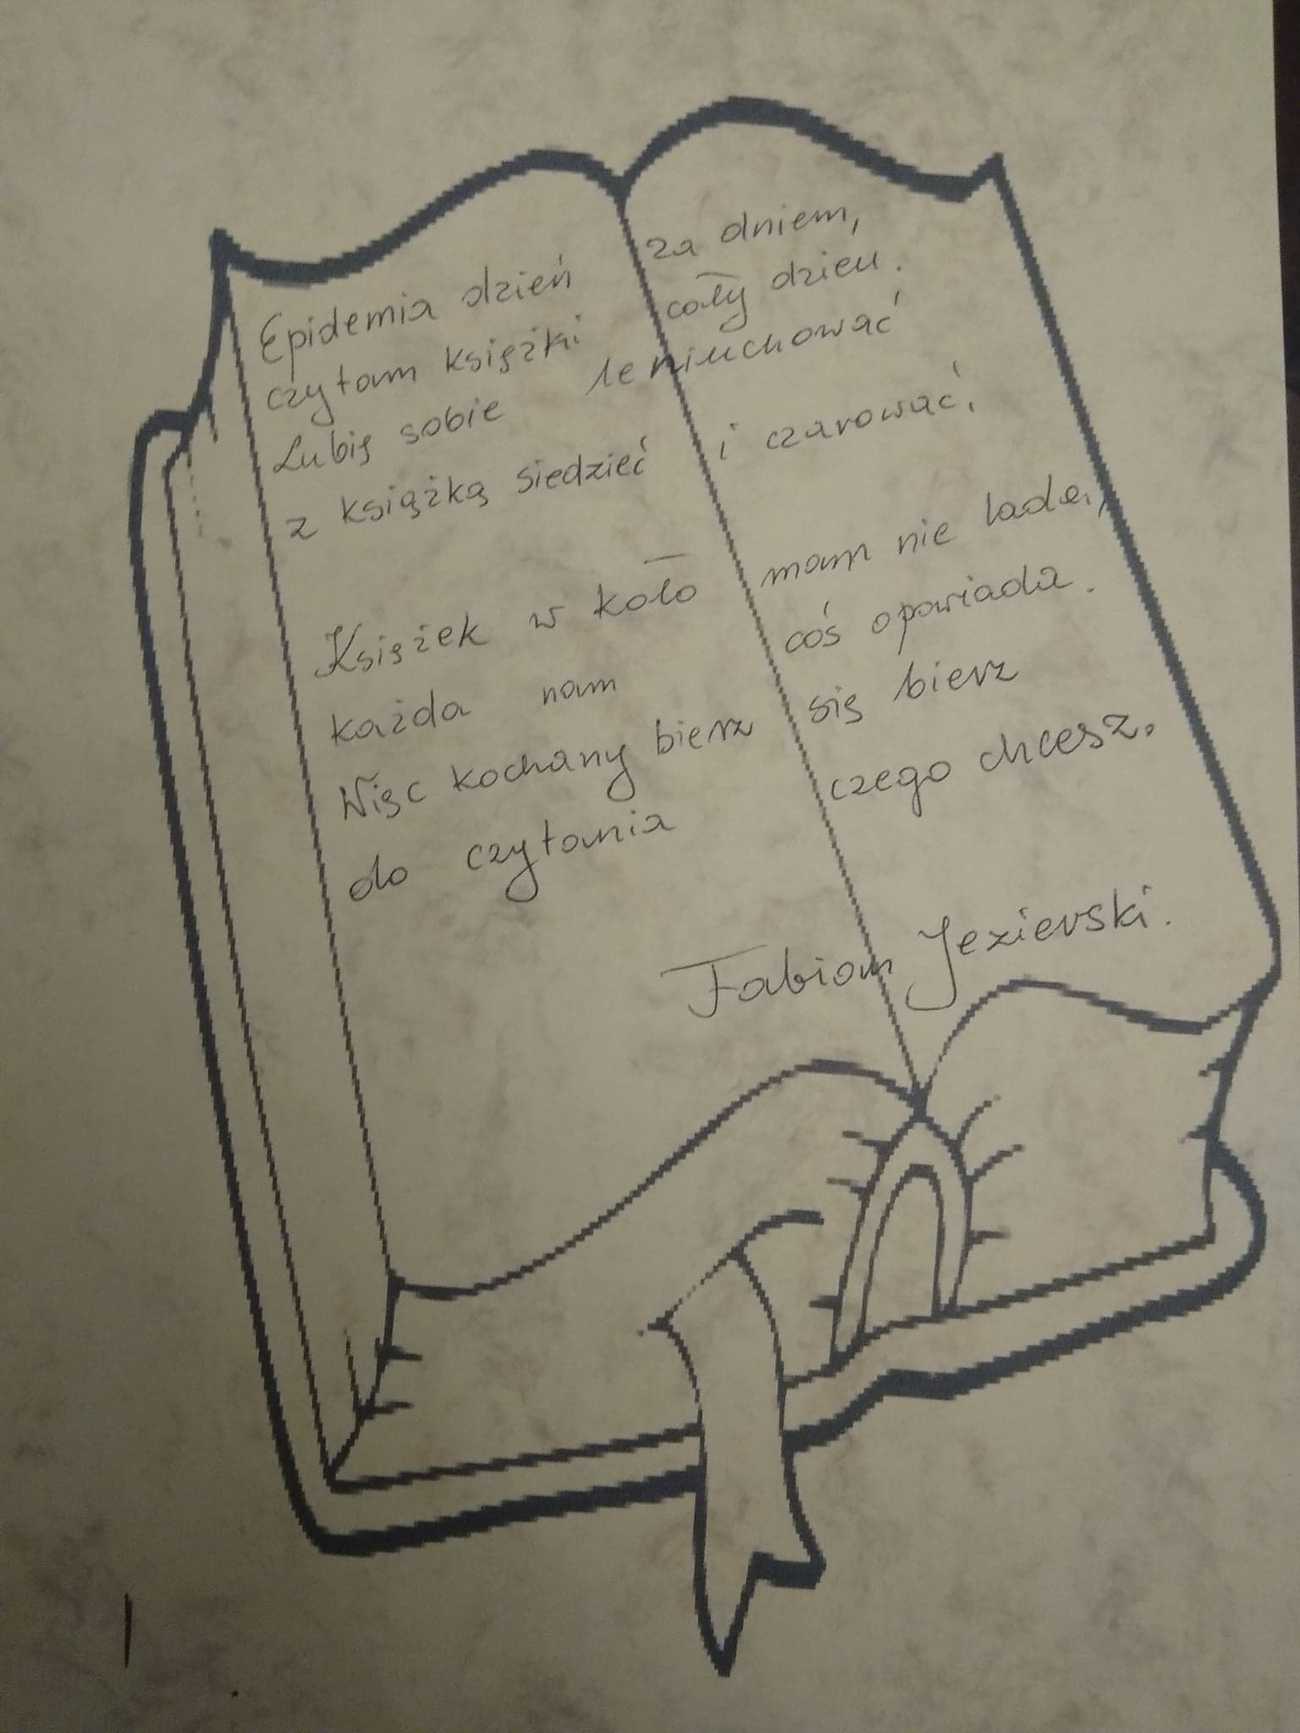 Epidemia dzień za dniem,
czytam książki cały dzień.
Lubię sobie leniuchować
z książką siedzieć i czarować.
Książek w koło mam nie lada,
każda nam coś opowiada.
Więc kochany bierz się bierz
do czytania czego chcesz.
Fabian Jezierski.